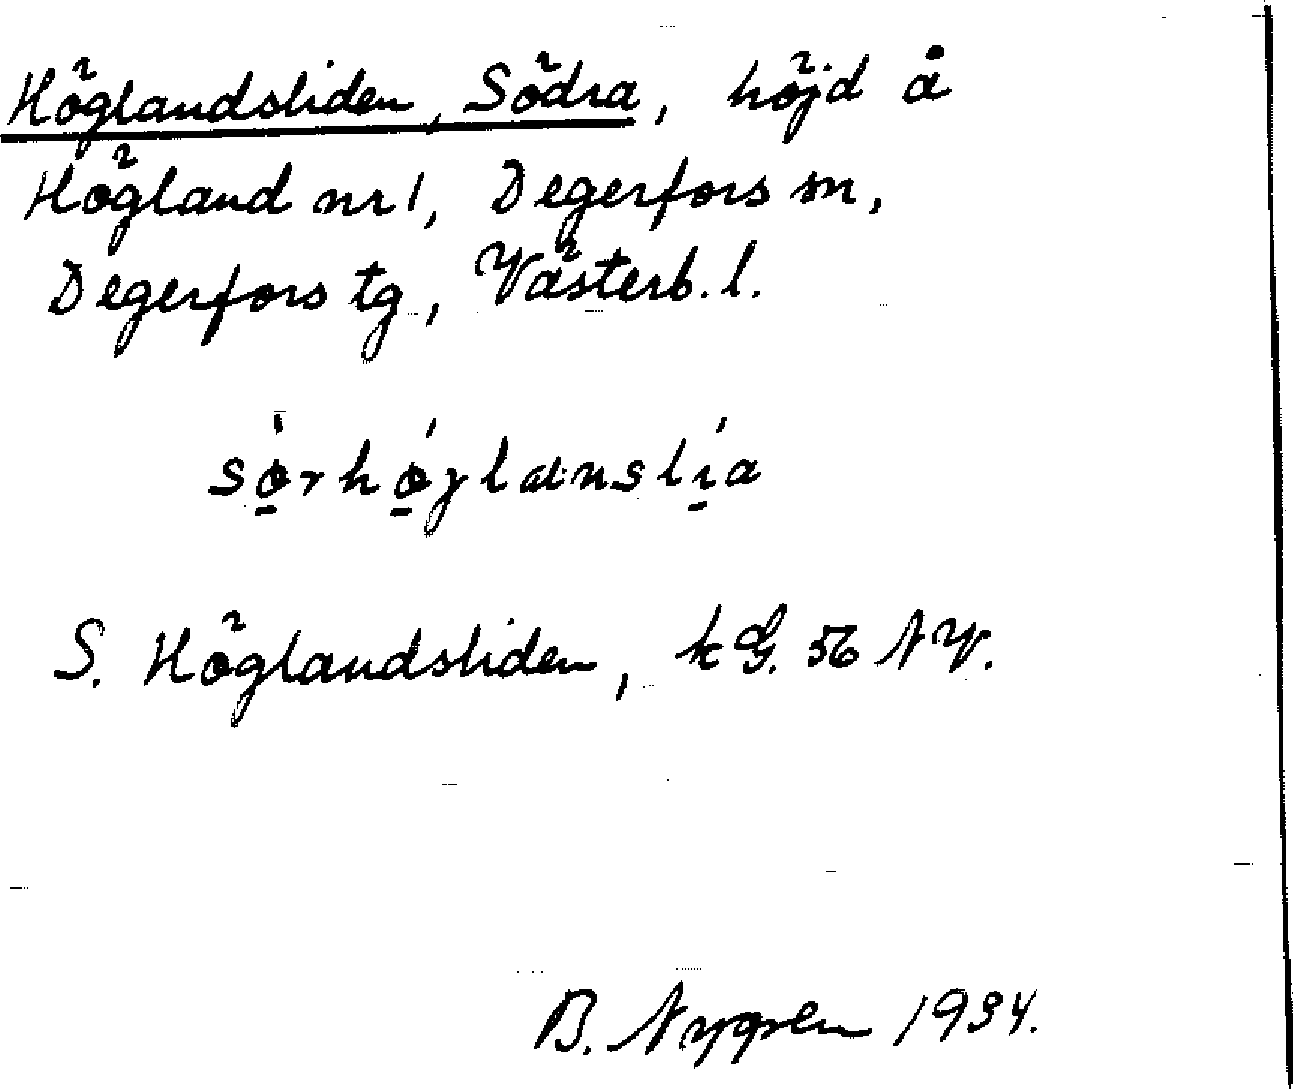 Höglandsliden, Södra, höjd å
Högland nr 1, Degerfors sn,
Degerfors tg, Västerb. l.
sø̱rhø̱γlanslı̱a
S. Höglandsliden, kG. 56 NV.
B. Nygren 1934.